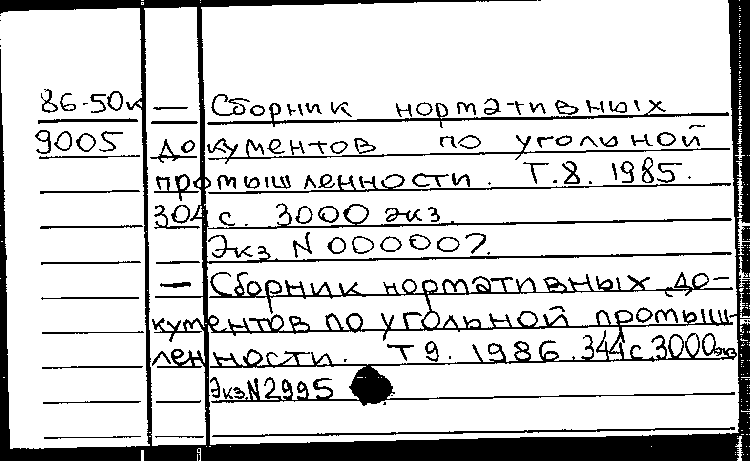 86-50к — Сборник нормативных
9005 документов по угольной
промышленности. Т.8. 1985.
304 с. 3000 экз.
Экз. N 0000007.
— Сборник нормативных до-
кументов по угольной промыш-
ленности. Т 9. 1986. 344 с. 3000 экз
Экз. N 2995